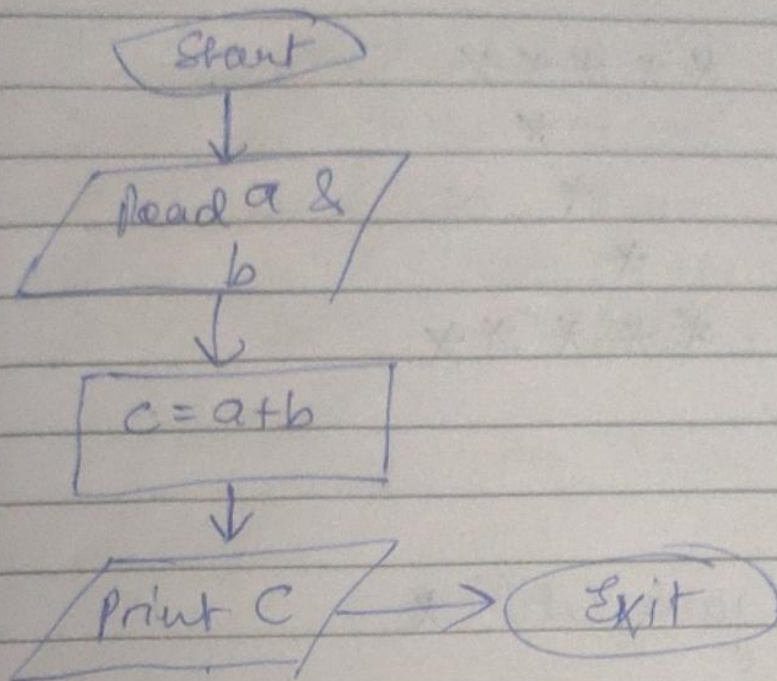 Start
Read a &
b
c = a+b
Print C
Exit